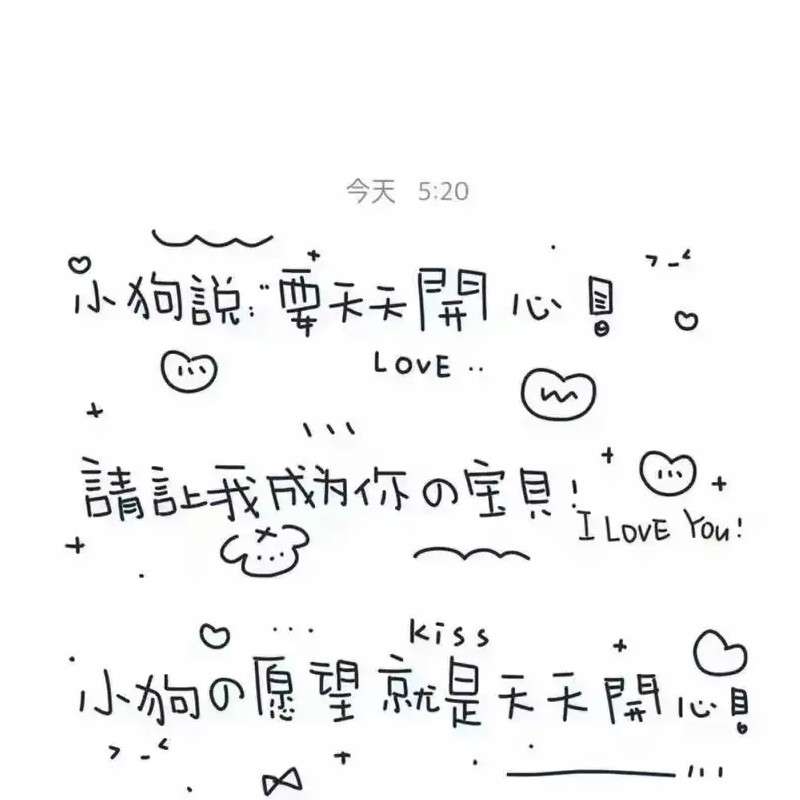 今天 5:20
小狗説:“要天天開心!
LOVE
請让我成为你の宝貝!
I LOVE You!
kiss
小狗の愿望就是天天開心!